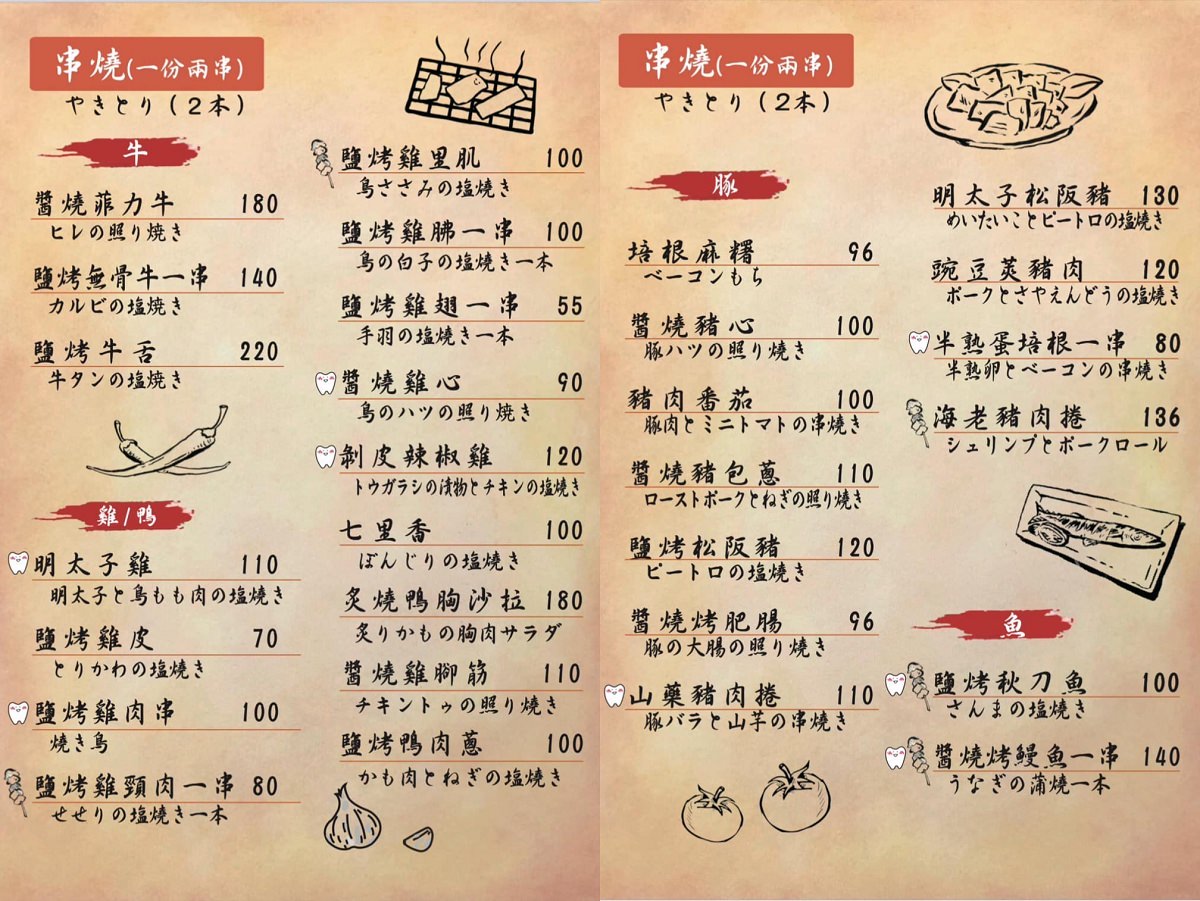 串燒(一份兩串)
やきとり(2本)
牛
醬燒菲力牛 180
ヒレの照り焼き
鹽烤無骨牛一串 140
カルビの塩焼き
鹽烤牛舌 220
牛タンの塩焼き
雞/鴨
明太子雞 110
明太子と鳥もも肉の塩焼き
鹽烤雞皮 70
とりかわの塩焼き
鹽烤雞肉串 100
焼き鳥
鹽烤雞頸肉一串 80
せせりの塩焼き一本
鹽烤雞里肌 100
鳥ささみの塩焼き
鹽烤雞胇一串 100
鳥の白子の塩焼き一本
鹽烤雞翅一串 55
手羽の塩焼き一本
醬燒雞心 90
鳥のハツの照り焼き
剝皮辣椒雞 120
トウガラシの漬物とチキンの塩焼き
七里香 100
ぼんじりの塩焼き
炙燒鴨胸沙拉 180
炙りかもの胸肉サラダ
醬燒雞腳筋 110
チキントゥの照り焼き
鹽烤鴨肉蔥 100
かも肉とねぎの塩焼き
串燒(一份兩串)
やきとり(2本)
豚
培根麻糬 96
ベーコンもち
醬燒豬心 100
豚ハツの照り焼き
豬肉番茄 100
豚肉とミニトマトの串焼き
醬燒豬包蔥 110
ローストポークとねぎの照り焼き
鹽烤松阪豬 120
ピートロの塩焼き
醬燒烤肥腸 96
豚の大腸の照り焼き
山藥豬肉捲 110
豚バラと山芋の串焼き
明太子松阪豬 130
めいたいことピートロの塩焼き
豌豆莢豬肉 120
ポークとさやえんどうの塩焼き
半熟蛋培根一串 80
半熟卵とベーコンの串焼き
海老豬肉捲 136
シェリンプとポークロール
魚
鹽烤秋刀魚 100
さんまの塩焼き
醬燒烤鰻魚一串 140
うなぎの蒲焼一本